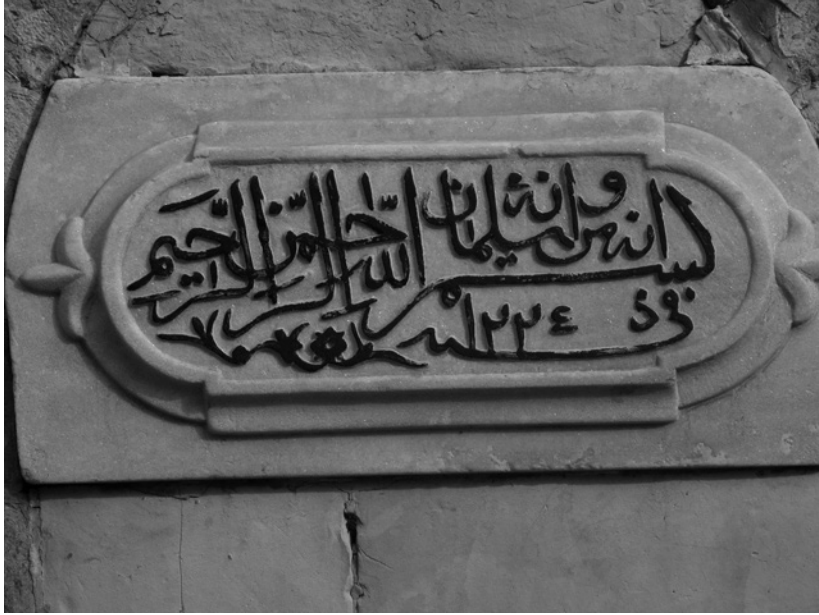 انه من سليمان وانه
بسم الله الرحمن الرحيم
في سنه ١٢٢٤